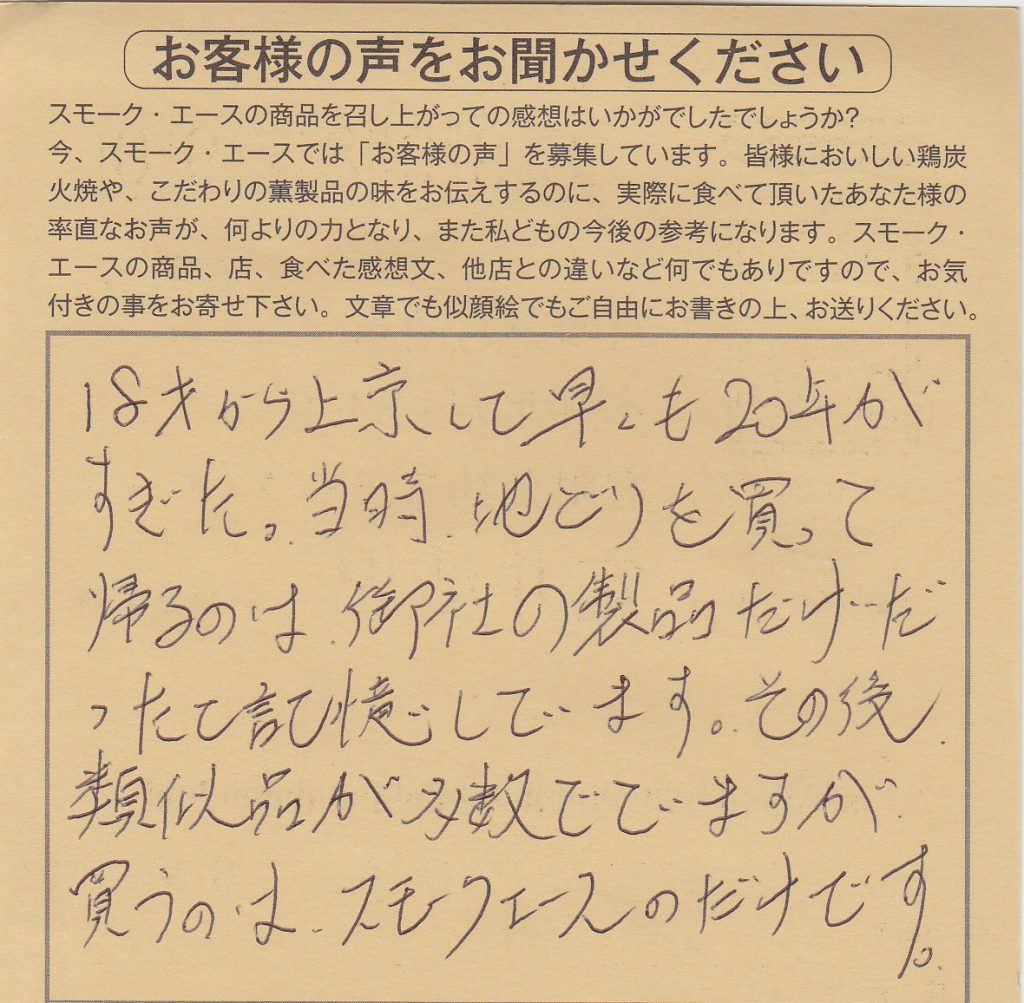 お客様の声をお聞かせください
スモーク・エースの商品を召し上がっての感想はいかがでしたでしょうか?
今、スモーク・エースでは「お客様の声」を募集しています。皆様においしい鶏炭
火焼や、こだわりの薫製品の味をお伝えするのに、実際に食べて頂いたあなた様の
率直なお声が、何よりの力となり、また私どもの今後の参考になります。スモーク・
エースの商品、店、食べた感想文、他店との違いなど何でもありですので、お気
付きの事をお寄せ下さい。文章でも似顔絵でもご自由にお書きの上、お送りください。
18才から上京して早くも20年が
すぎた。当時、地どりを買って
帰るのは、御社の製品だけだ
ったと記憶しています。その後、
類似品が多数でていますが、
買うのは、スモークエースのだけです。